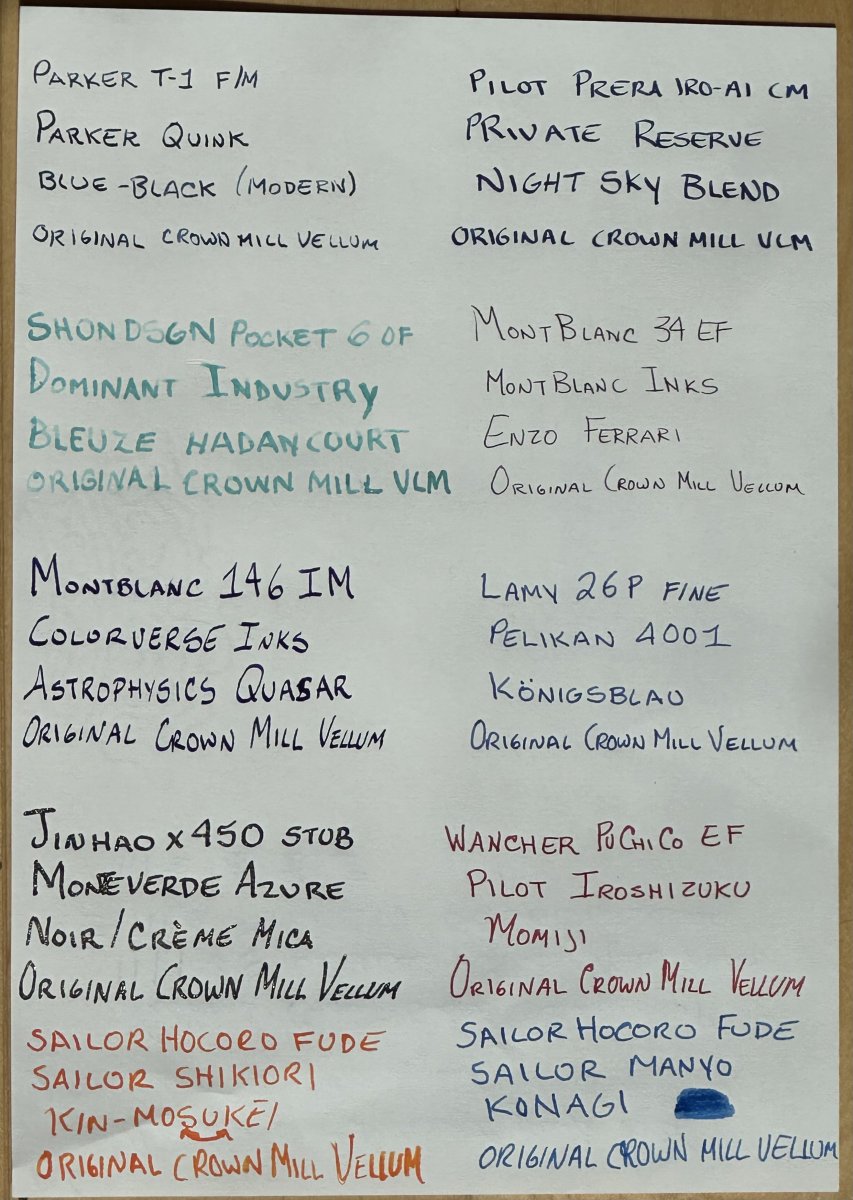 PARKER T-1 F/M
PARKER QUINK
BLUE-BLACK (MODERN)
ORIGINAL CROWN MILL VELLUM
PILOT PRERA IRO-AI CM
PRIVATE RESERVE
NIGHT SKY BLEND
ORIGINAL CROWN MILL VLM
SHONDSGN POCKET 6 OF
DOMINANT INDUSTRY
BLEUZE HADANCOURT
ORIGINAL CROWN MILL VLM
MONTBLANC 34 EF
MONTBLANC INKS
ENZO FERRARI
ORIGINAL CROWN MILL VELLUM
MONTBLANC 146 IM
COLORVERSE INKS
ASTROPHYSICS QUASAR
ORIGINAL CROWN MILL VELLUM
LAMY 26P FINE
PELIKAN 4001
KÖNIGSBLAU
ORIGINAL CROWN MILL VELLUM
JINHAO X450 STUB
MONEVERDE AZURE
NOIR/CRÈME MICA
ORIGINAL CROWN MILL VELLUM
WANCHER PUCHICO EF
PILOT IROSHIZUKU
MOMIJI
ORIGINAL CROWN MILL VELLUM
SAILOR HOCORO FUDE
SAILOR SHIKIORI
KIN-MOSUKĒI
ORIGINAL CROWN MILL VELLUM
SAILOR HOCORO FUDE
SAILOR MANYO
KONAGI
ORIGINAL CROWN MILL VELLUM